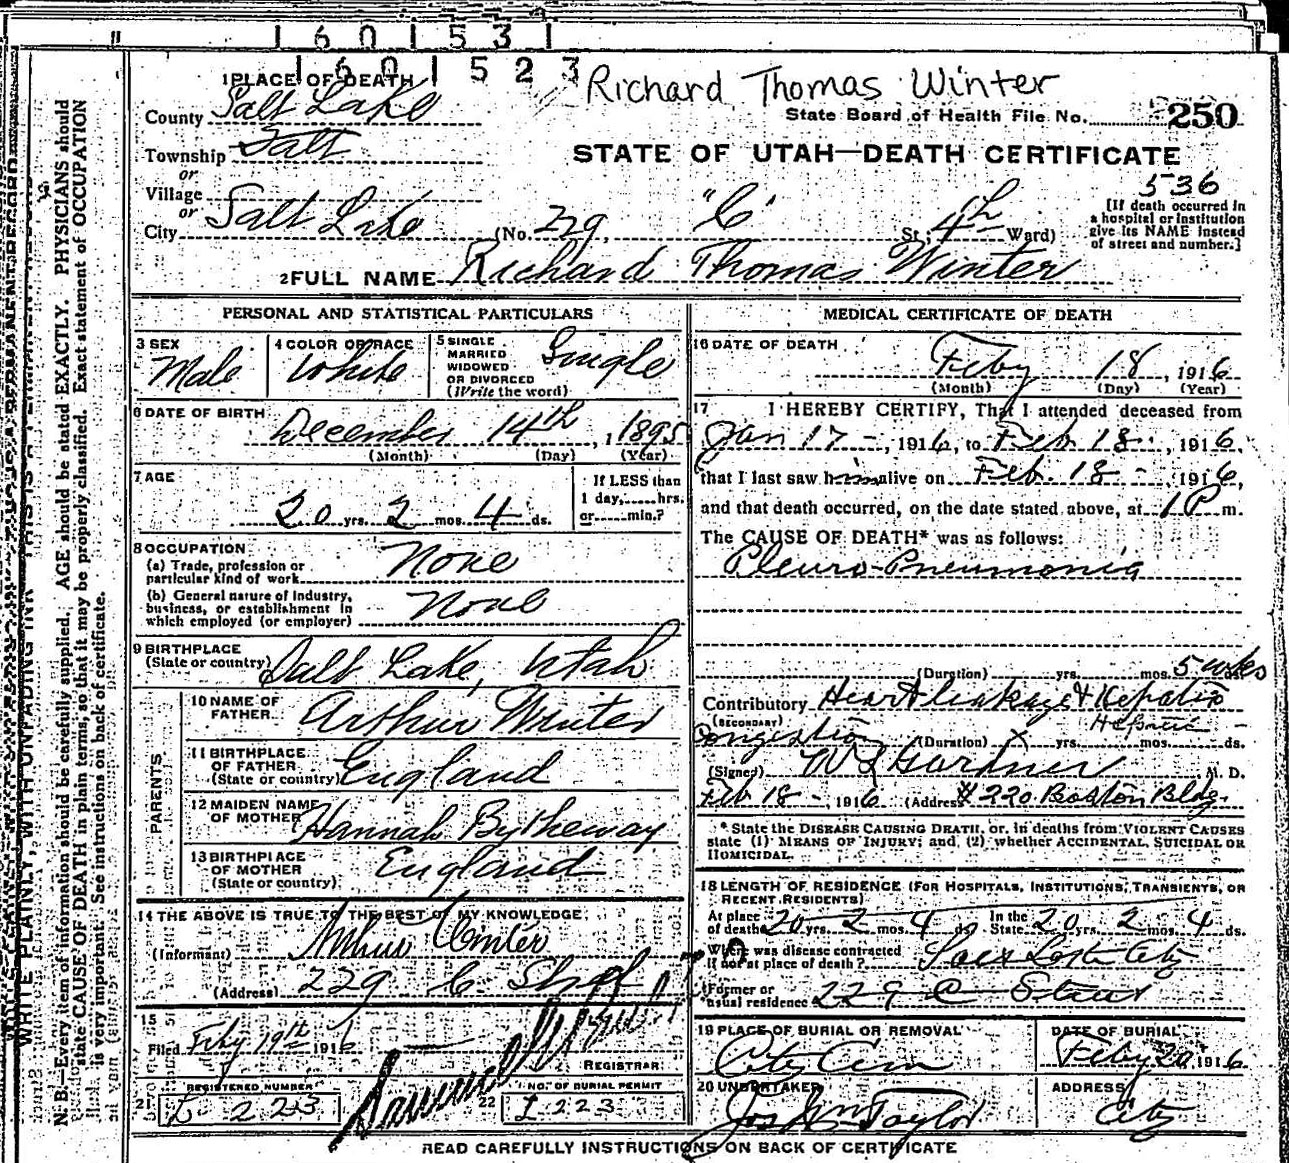 1601531
1601523
Richard Thomas Winter
1 PLACE OF DEATH
County Salt Lake
State Board of Health File No. 250
Township Salt
or
STATE OF UTAH—DEATH CERTIFICATE
Village
or
536
City Salt Lake (No. 229, "C" St, 4th Ward)
[If death occurred in
a hospital or institution
give its NAME instead
of street and number.]
2 FULL NAME Richard Thomas Winter
PERSONAL AND STATISTICAL PARTICULARS
3 SEX
Male
4 COLOR OR RACE
White
5 SINGLE
MARRIED
WIDOWED
OR DIVORCED
(Write the word)
Single
6 DATE OF BIRTH
December 14th, 1895
(Month) (Day) (Year)
7 AGE
20 yrs. 2 mos. 4 ds.
If LESS than
1 day, hrs.
or min.?
8 OCCUPATION
(a) Trade, profession or
particular kind of work None
(b) General nature of industry,
business, or establishment in
which employed (or employer) None
9 BIRTHPLACE
(State or country) Salt Lake, Utah
PARENTS
10 NAME OF
FATHER Arthur Winter
11 BIRTHPLACE
OF FATHER
(State or country) England
12 MAIDEN NAME
OF MOTHER Hannah Bytheway
13 BIRTHPLACE
OF MOTHER
(State or country) England
14 THE ABOVE IS TRUE TO THE BEST OF MY KNOWLEDGE
(Informant) Arthur Winter
(Address) 229 C. Street
15
Filed Feby 19th 1916
REGISTRAR
REGISTERED NUMBER
21 L 223
NO. OF BURIAL PERMIT
22 L 223
MEDICAL CERTIFICATE OF DEATH
16 DATE OF DEATH
Feby 18, 1916
(Month) (Day) (Year)
17 I HEREBY CERTIFY, That I attended deceased from
Jan 17 -, 1916, to Feb. 18, 1916,
that I last saw him alive on Feb. 18 - 1916,
and that death occurred, on the date stated above, at 1 P m.
The CAUSE OF DEATH* was as follows:
Pleuro-Pneumonia
(Duration) yrs. mos. 5 wks ds.
Contributory Heart leakage & Hepatic
(SECONDARY) Hepatic
Congestion (Duration) X yrs. mos. ds.
(Signed) W S Gardner M. D.
Feb 18 -, 1916 (Address) #220 Boston Bldg.
* State the DISEASE CAUSING DEATH, or, in deaths from VIOLENT CAUSES
state (1) MEANS OF INJURY; and (2) whether ACCIDENTAL, SUICIDAL OR
HOMICIDAL.
18 LENGTH OF RESIDENCE (FOR HOSPITALS, INSTITUTIONS, TRANSIENTS, OR
RECENT RESIDENTS)
At place
of death 20 yrs. 2 mos. 4 ds. In the
State 20 yrs. 2 mos. 4 ds.
Where was disease contracted
if not at place of death? Salt Lake City
Former or
usual residence 229 C Street
19 PLACE OF BURIAL OR REMOVAL
City Cem
DATE OF BURIAL
Feby 20 1916
20 UNDERTAKER
Jos Wm Taylor
ADDRESS
City
READ CAREFULLY INSTRUCTIONS ON BACK OF CERTIFICATE
WRITE PLAINLY, WITH UNFADING INK—THIS IS A PERMANENT RECORD
N. B.—Every item of information should be carefully supplied. AGE should be stated EXACTLY. PHYSICIANS should
state CAUSE OF DEATH in plain terms, so that it may be properly classified. Exact statement of OCCUPATION
is very important. See instructions on back of certificate.